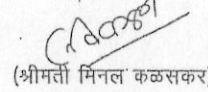 (श्रीमती मिनल कळसकर